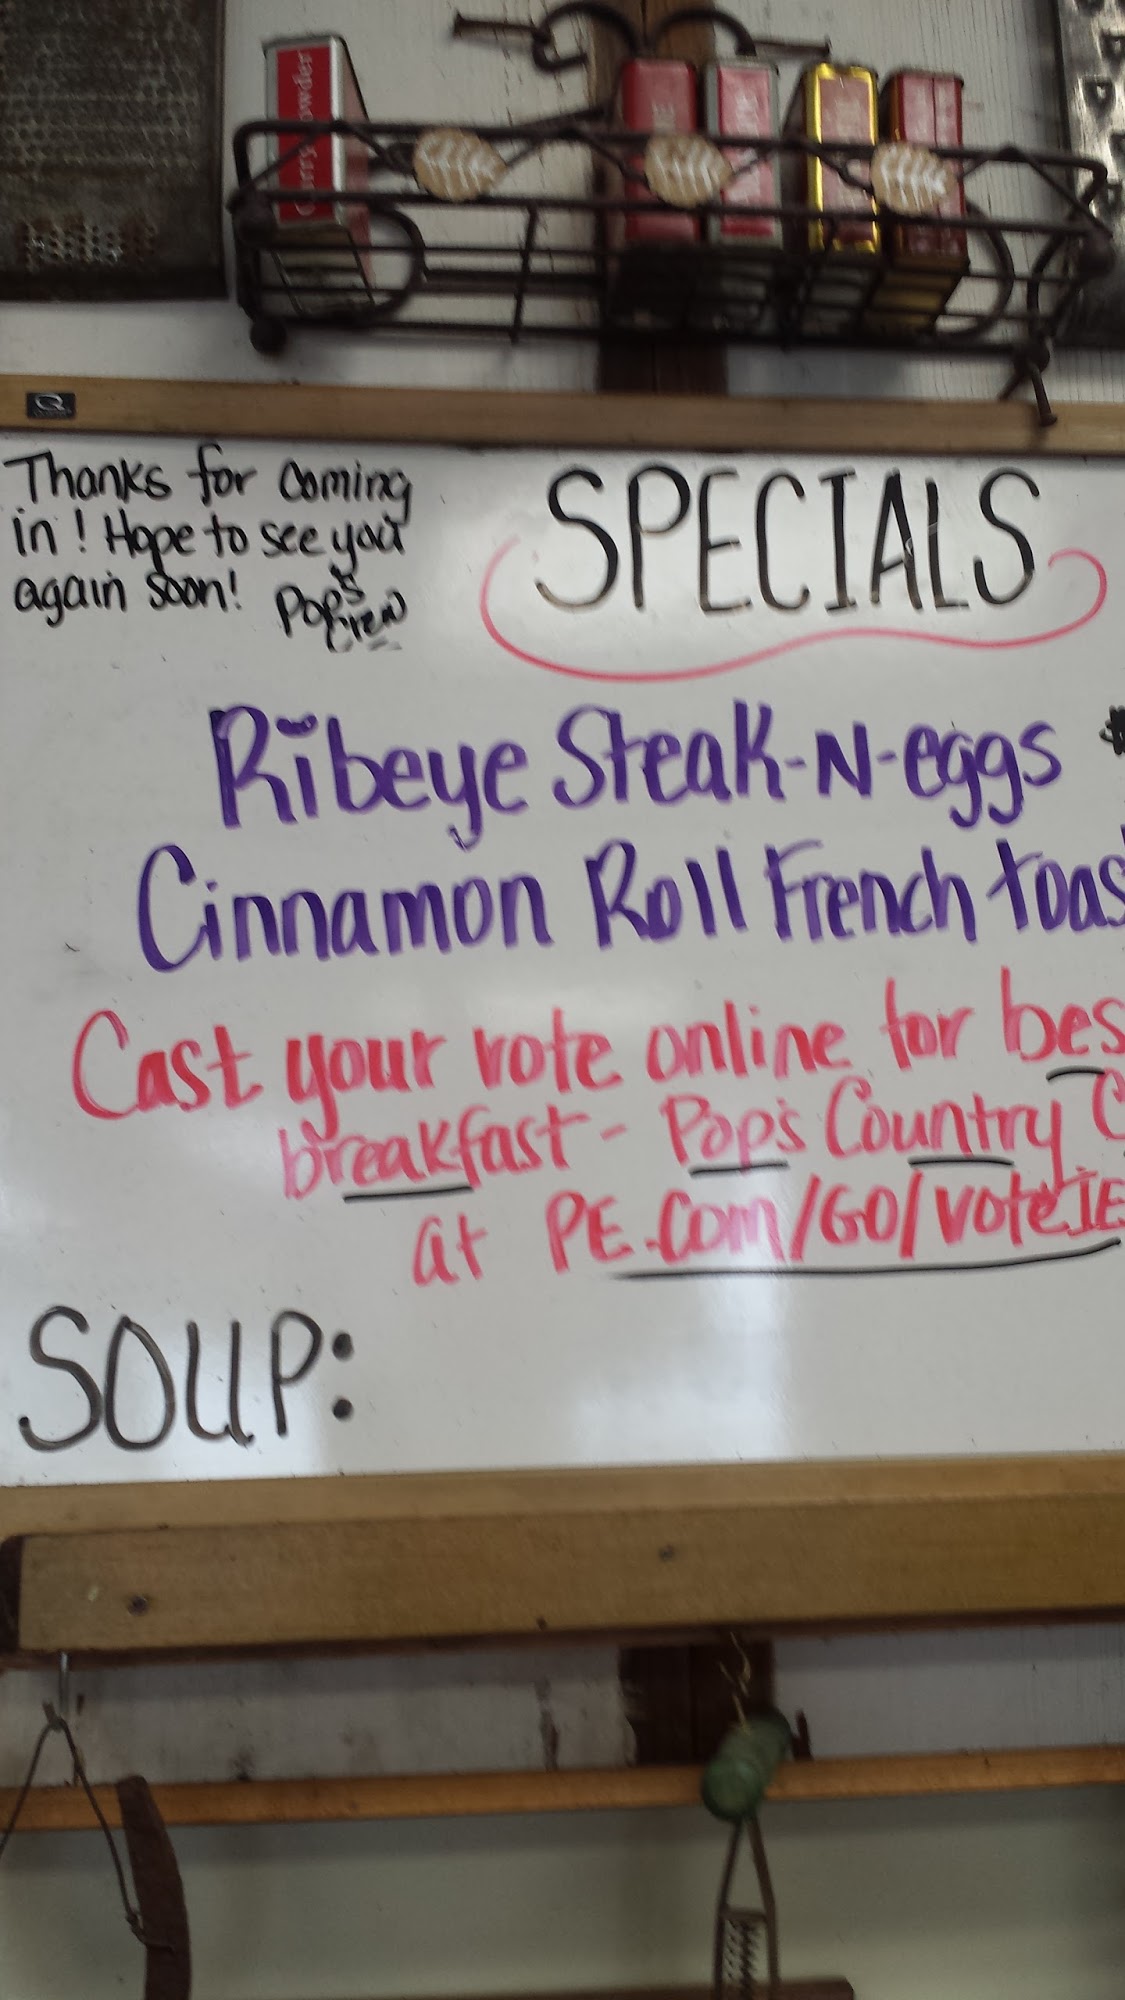 Curry Powder
Thanks for coming
in! Hope to see you
again soon! Pop's
Crew
SPECIALS
Ribeye Steak-N-eggs
Cinnamon Roll French toas
Cast your vote online for bes
breakfast- Pop's Country C
at PE.com/GO/voteIE
SOUP: